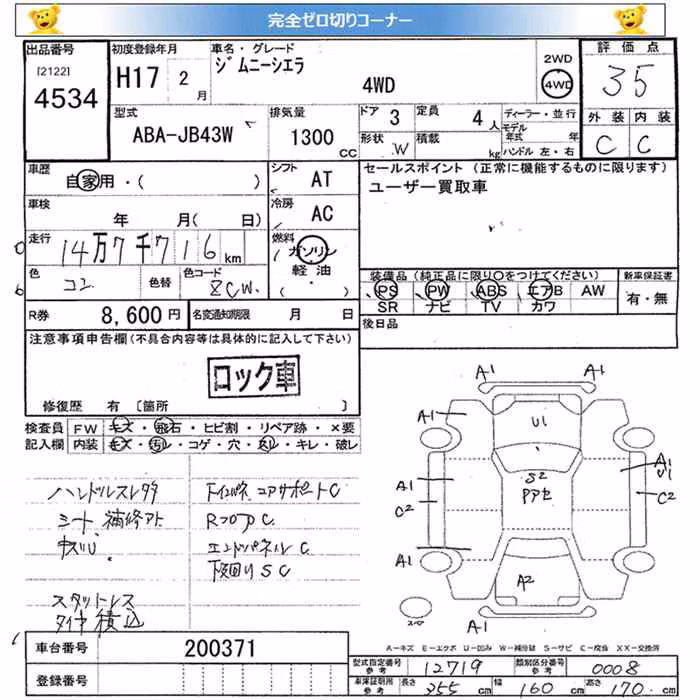 完全ゼロ切りコーナー
出品番号
[2122]
4534
初度登録年月
H17 2月
車名・グレード
ジムニーシエラ
4WD
2WD
4WD
評価点
35
型式
ABA-JB43W
排気量
1300 CC
ドア 3
定員 4人
形状 W
積載 kg
ディーラー・並行
モデル年式 年
ハンドル 左・右
外装 内装
C C
車歴
自家用・( )
シフト AT
車検
年 月( 日)
冷房 AC
走行
14万7千716km
燃料
ガソリン
軽油
( )
色
コン
色替
色コード
ZCW.
R券 8,600円
名変通知期限 月 日
セールスポイント(正常に機能するものに限ります)
ユーザー買取車
装備品(純正品に限り○をつけてください)
PS PW ABS エアB AW
SR ナビ TV カワ
新車保証書
有・無
後日品
注意事項申告欄(不具合内容等は具体的に記入して下さい)
ロック車
修復歴 有 〔箇所 〕
検査員 FW キズ・飛石・ヒビ割・リペア跡・×要
記入欄 内装 キズ・汚レ・コゲ・穴・スレ・キレ・破レ
ハンドルスレ
シート 補修アト
下回り S C
エンドパネル C
RフロアC
スタットレス
タイヤ積込
A1 A1
A1
U1
A1
U1
A1
S2
C2
C2
A1
A2
A1
A-キズ E-エクボ U-凹み W-補修跡 S-サビ C-腐食 XX-交換済
車台番号 200371
登録番号
型式指定番号 参考 12719
類別区分番号 参考 0008
車庫証明用 参考 長さ 355cm 幅 160cm 高さ 170cm